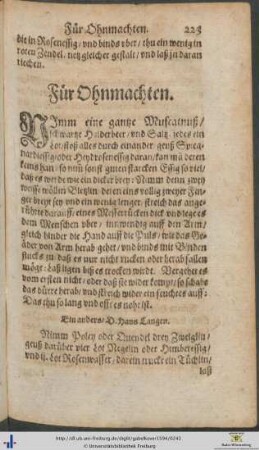 Für Ohnmachten. 223
die in Rosenessig/ vnd binds vber/ thu ein wenig in
roten Zendel, netz gleicher gestalt/ vnd laß jn daran
riechen.
Für Ohnmachten.
NImm eine gantze Muscatnuß/
schwartze Holderbeer/ vnd Saltz, jedes ein
Lot/ stoß alles durch einander, geuß
daran/ kan mã deren
keins han/ so nim sonst guten starcken Essig so viel/
daß es werde wie ein dicker brey: Nimm denn zwey
weisse wöllen Pletzlin, deren eins völlig zweyer Fin-
ger breyt sey vnd ein wenig lenger, streich das ange-
rührte darauff/ eines Messerrücken dick vnd lege es
dem Menschen vber/ inwendig auff den Arm/
gleich hinder die Hand auff die Puls/ wie das Pe-
von Arm herab gehet/ vnd binds mit Binden
stucks zu daß es nur nicht rucken oder herab fallen
möge: Laß ligen biß es trocken wirdt. Vergehet es
vom ersten nicht/ oder daß sie wider kompt, so schab
das dürre herab/ vnd streich wider ein feuchtes auff:
Das thu so lang vnd offt es noht ist.
Ein anders/ D. Hans Langen.
Nimm Poley oder Quendel drey Zweiglin/
geuß darüber vier Lot Negelin oder Himbeeressig/
vnd ij. Lot Rosenwasser, darein trucke ein Tüchlin/
laß
© Universitätsbibliothek Freiburg